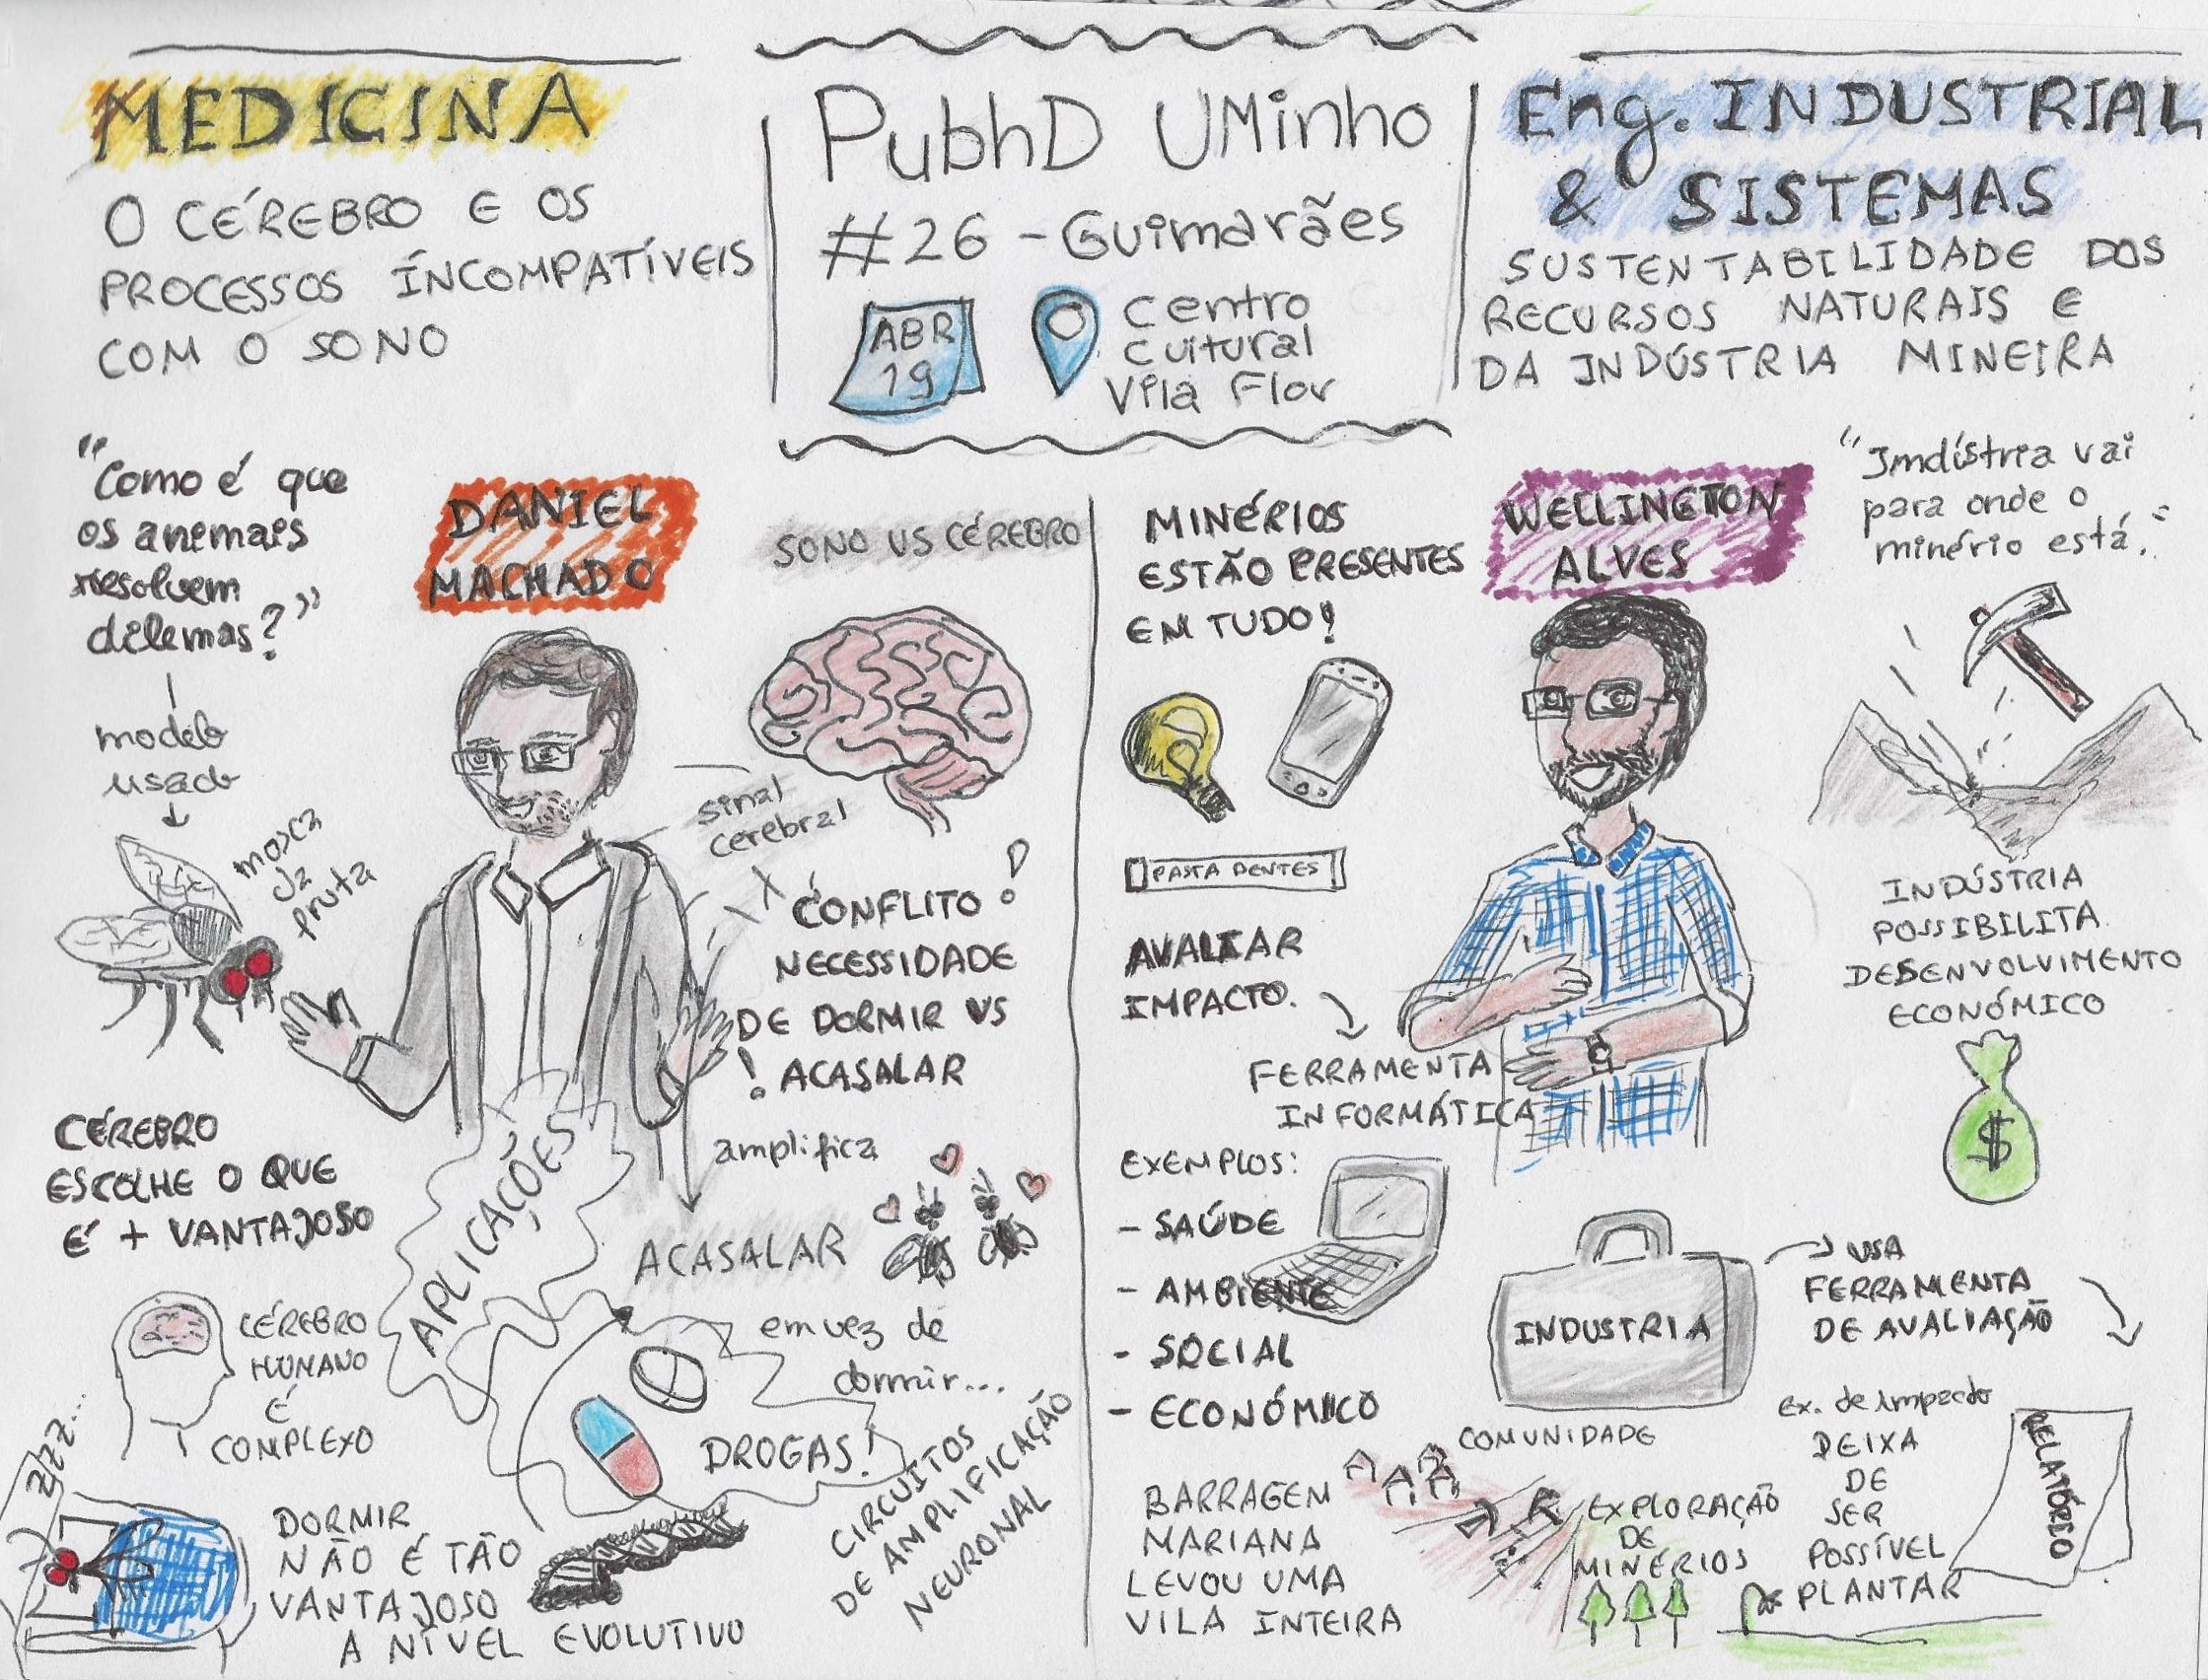 MEDICINA
O CÉREBRO E OS
PROCESSOS ÍNCOMPATÍVEIS
COM O SONO
PubhD UMinho
#26 - Guimarães
ABR
19
Centro
Cultural
Vila Flor
Eng. INDUSTRIAL
& SISTEMAS
SUSTENTABILIDADE DOS
RECURSOS NATURAIS E
DA INDÚSTRIA MINEIRA
"Como é que
os animais
resolvem
dilemas?"
modelo
usado
mosca
da
fruta
DANIEL
MACHADO
SONO VS CÉREBRO
sinal
cerebral
CONFLITO!
NECESSIDADE
DE DORMIR VS
! ACASALAR
amplifica
ACASALAR
em vez de
dormir...
CIRCUITOS
DE AMPLIFICAÇÃO
NEURONAL
CÉREBRO
ESCOLHE O QUE
É + VANTAJOSO
APLICAÇÕES
DROGAS!
CÉREBRO
HUMANO
É
COMPLEXO
zzz...
DORMIR
NÃO É TÃO
VANTAJOSO
A NÍVEL EVOLUTIVO
MINÉRIOS
ESTÃO PRESENTES
EM TUDO!
PASTA DENTES
AVALIAR
IMPACTO.
FERRAMENTA
INFORMÁTICA
EXEMPLOS:
- SAÚDE
- AMBIENTE
- SOCIAL
- ECONÓMICO
BARRAGEM
MARIANA
LEVOU UMA
VILA INTEIRA
WELLINGTON
ALVES
"Imdístria vai
para onde o
minério está."
INDÚSTRIA
POSSIBILITA
DESENVOLVIMENTO
ECONÓMICO
$
INDUSTRIA
USA
FERRAMENTA
DE AVALIAÇÃO
COMUNIDADE
EXPLORAÇÃO
DE
MINÉRIOS
ex. de impacto
DEIXA
DE
SER
POSSÍVEL
PLANTAR
RELATÓRIO